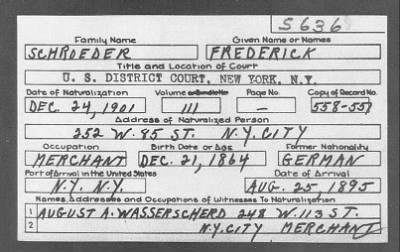 S 636
Family Name Given Name or Names
SCHROEDER FREDERICK
Title and Location of Court
U. S. DISTRICT COURT, NEW YORK, N.Y.
Date of Naturalization Volume or Bundle No. Page No. Copy of Record No.
DEC. 24, 1901 111 – 558-551
Address of Naturalized Person
252 W. 85 ST. N.Y. CITY
Occupation Birth Date or Age Former Nationality
MERCHANT DEC. 21, 1864 GERMAN
Port of Arrival in the United States Date of Arrival
N.Y. N.Y. AUG. 25, 1895
Names, Addresses and Occupations of Witnesses To Naturalization
1 AUGUST A. WASSERSCHERD 248 W. 113 ST.
2 N.Y. CITY MERCHANT